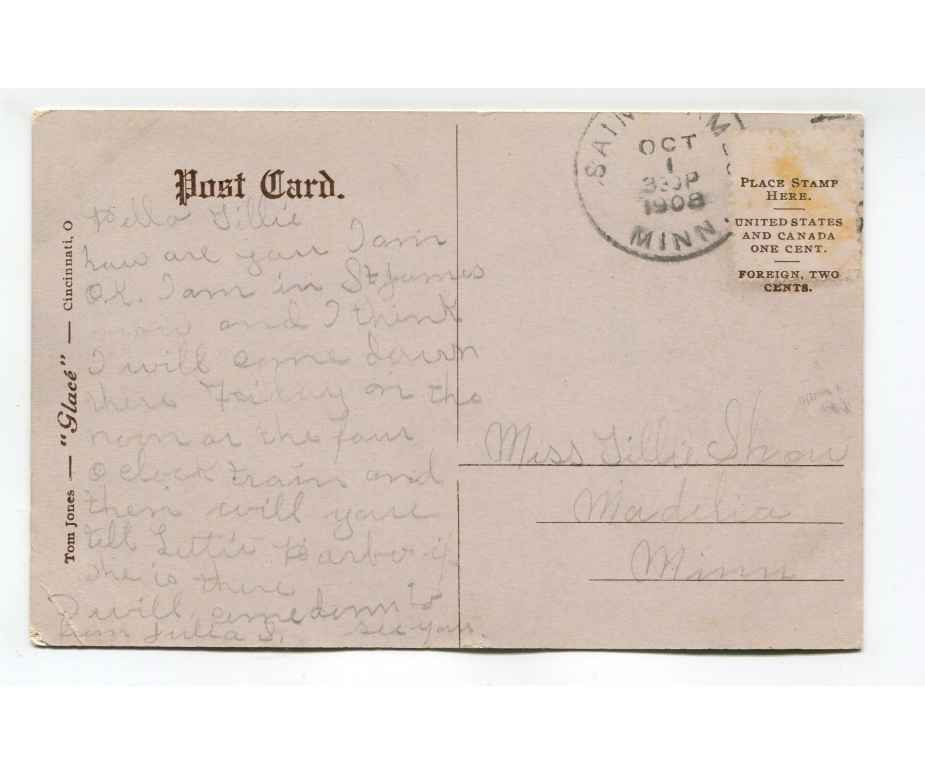 Post Card.
Hello Tillie
how are you I am
O.K. I am in St James
now and I think
I will come down
there Friday on the
noon or the four
o clock train and
then will you
tell Lettie if
she is there
I will come down to
see you.
from Julia S.
Tom Jones — "Glacé" — Cincinnati, O
OCT
1
1908
MINN.
PLACE STAMP
HERE.
UNITED STATES
AND CANADA
ONE CENT.
FOREIGN, TWO
CENTS.
Miss Tillie
Madelia
Minn